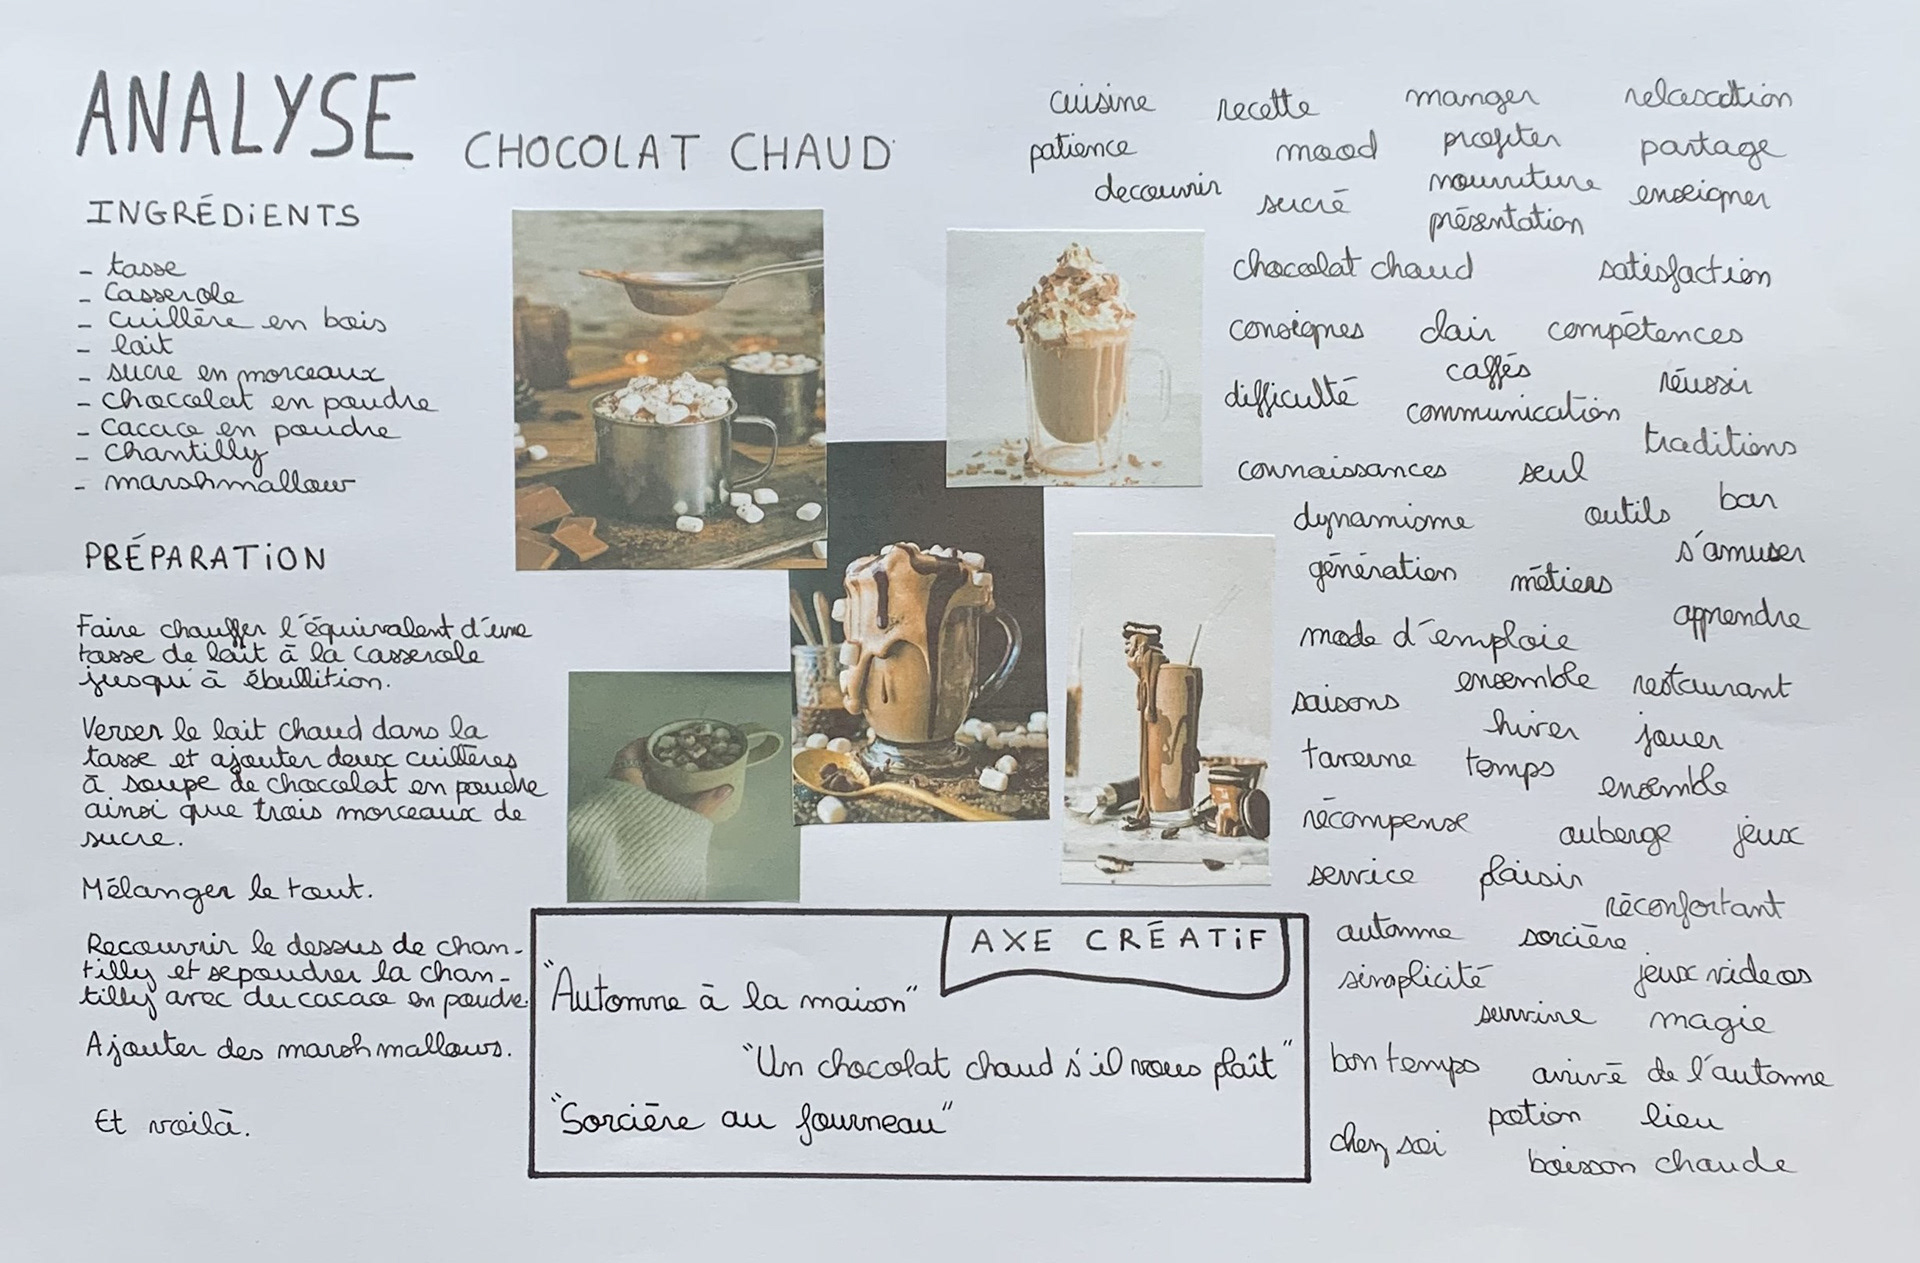 ANALYSE
CHOCOLAT CHAUD
INGRÉDiENTS
- tasse
- casserole
- cuillère en bois
- lait
- sucre en morceaux
- chocolat en poudre
- cacao en poudre
- chantilly
- marshmallow
PRÉPARATiON
Faire chauffer l'équivalent d'une
tasse de lait à la casserole
jusqu'à ébullition.
Verser le lait chaud dans la
tasse et ajouter deux cuillères
à soupe de chocolat en poudre
ainsi que trois morceaux de
sucre.
Mélanger le tout.
Recouvrir le dessus de chan-
tilly et sepoudrer la chan-
tilly avec du cacao en poudre.
Ajouter des marshmallows.
Et voilà.
AXE CRÉATiF
"Automne à la maison"
"Un chocolat chaud s'il vous plaît"
"Sorcière au fourneau"
cuisine recette manger relaxation
patience mood profiter partage
decouvrir sucré nourriture enseigner
présentation
chocolat chaud satisfaction
consignes clair compétences
caffés réussir
difficulté communication
traditions
connaissances seul
bar
dynamisme outils
s'amuser
génération métiers
apprendre
mode d'emploie
ensemble restaurant
saisons
hiver jouer
taverne temps
ensemble
récompense auberge jeux
service plaisir
réconfortant
automne sorcière
simplicité jeux videos
survivre magie
bon temps arrivé de l'automne
potion lieu
chez soi
boisson chaude